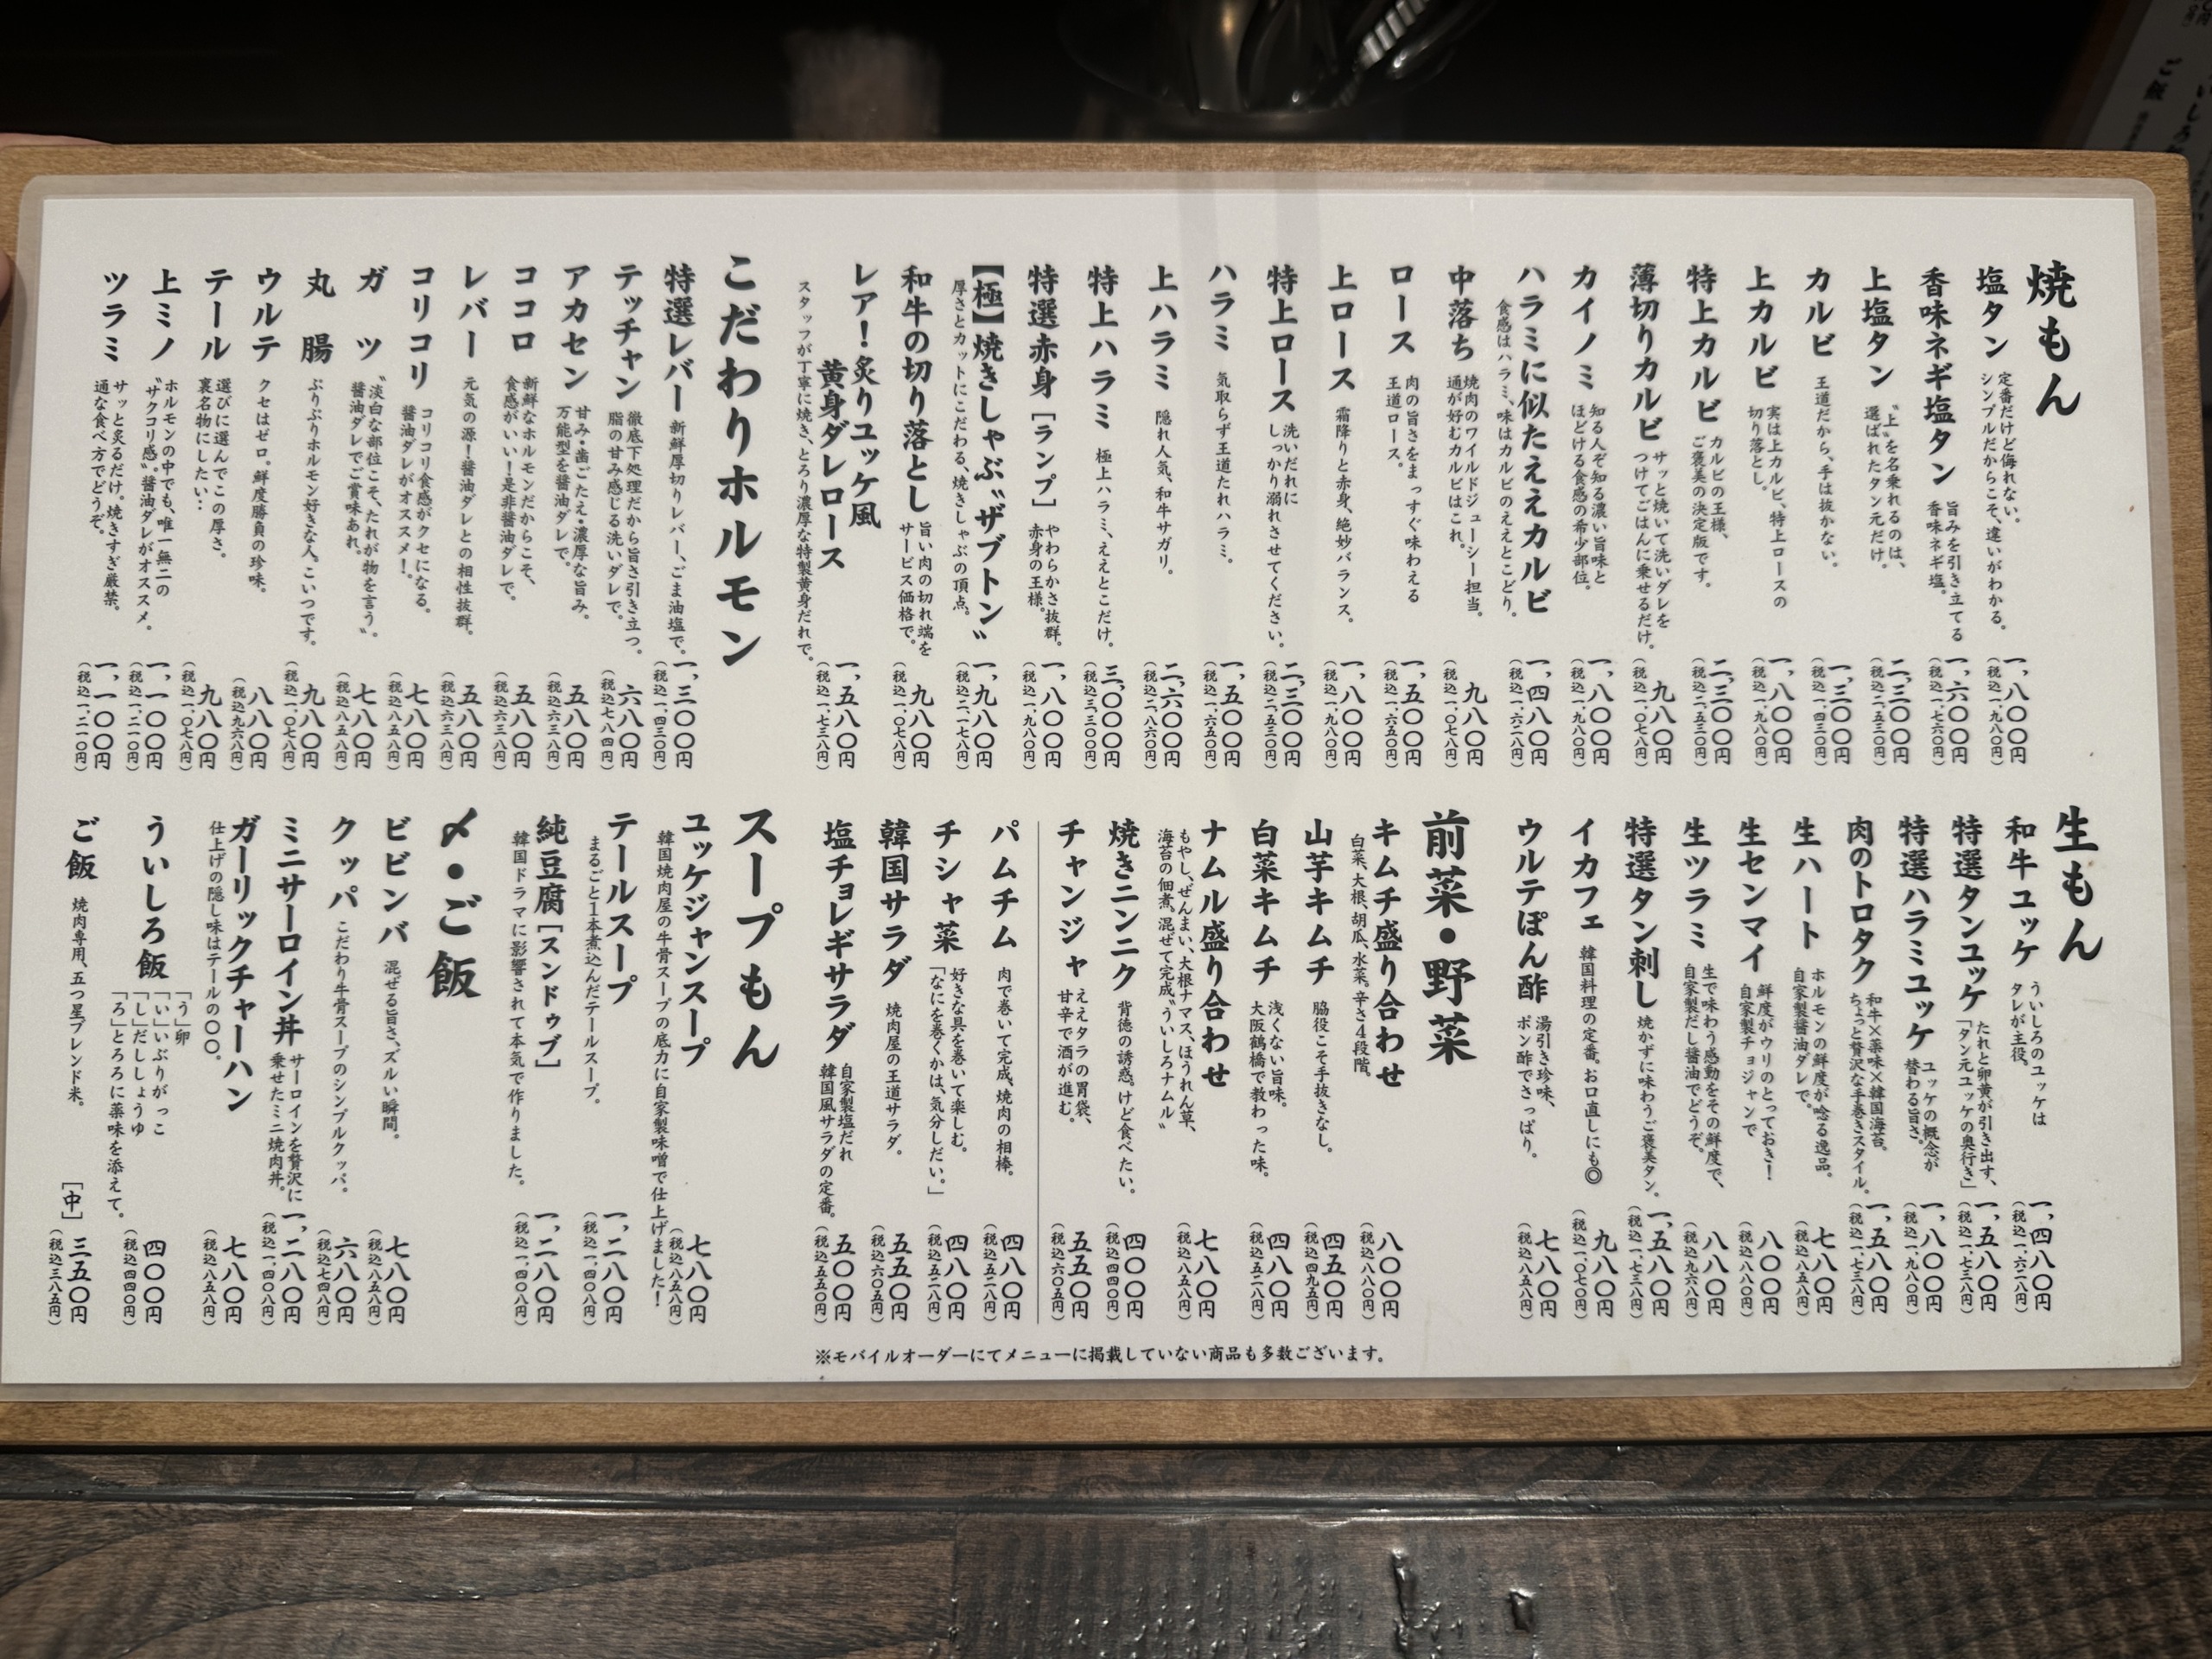 焼もん
塩タン
定番だけど侮れない。
シンプルだからこそ、違いがわかる。
一、八〇〇円
（税込一、九八〇円）
香味ネギ塩タン
旨みを引き立てる
香味ネギ塩。
一、六〇〇円
（税込一、七六〇円）
上塩タン
〝上〟を名乗れるのは、
選ばれたタン元だけ。
二、三〇〇円
（税込二、五三〇円）
カルビ
王道だから、手は抜かない。
一、三〇〇円
（税込一、四三〇円）
上カルビ
実は上カルビ、特上ロースの
切り落とし。
一、八〇〇円
（税込一、九八〇円）
特上カルビ
カルビの王様、
ご褒美の決定版です。
二、三〇〇円
（税込二、五三〇円）
薄切りカルビ
サッと焼いて洗いダレを
つけてごはんに乗せるだけ。
九八〇円
（税込一、〇七八円）
カイノミ
知る人ぞ知る濃い旨味と
ほどける食感の希少部位。
一、八〇〇円
（税込一、九八〇円）
ハラミに似たええカルビ
食感はハラミ、味はカルビのええとこどり。
一、四八〇円
（税込一、六二八円）
中落ち
焼肉のワイルドジューシー担当。
通が好むカルビはこれ。
九八〇円
（税込一、〇七八円）
ロース
肉の旨さをまっすぐ味わえる
王道ロース。
一、五〇〇円
（税込一、六五〇円）
上ロース
霜降りと赤身、絶妙バランス。
一、八〇〇円
（税込一、九八〇円）
特上ロース
洗いだれに
しっかり溺れさせてください。
二、三〇〇円
（税込二、五三〇円）
ハラミ
気取らず王道たれハラミ。
一、五〇〇円
（税込一、六五〇円）
上ハラミ
隠れ人気、和牛サガリ。
二、六〇〇円
（税込二、八六〇円）
特上ハラミ
極上ハラミ、ええとこだけ。
三、〇〇〇円
（税込三、三〇〇円）
特選赤身［ランプ］
やわらかさ抜群。
赤身の王様。
一、八〇〇円
（税込一、九八〇円）
【極】焼きしゃぶ〝ザブトン〟
厚さとカットにこだわる、焼きしゃぶの頂点。
一、九八〇円
（税込二、一七八円）
和牛の切り落とし
旨い肉の切れ端を
サービス価格で。
九八〇円
（税込一、〇七八円）
レア！炙りユッケ風
黄身ダレロース
スタッフが丁寧に焼き、とろり濃厚な特製黄身だれで。
一、五八〇円
（税込一、七三八円）
こだわりホルモン
特選レバー
新鮮厚切りレバー、ごま油塩で。
一、三〇〇円
（税込一、四三〇円）
テッチャン
徹底下処理だから旨さ引き立つ。
脂の甘み感じる洗いダレで。
六八〇円
（税込七四八円）
アカセン
甘み・歯ごたえ・濃厚な旨み。
万能型を醤油ダレで。
五八〇円
（税込六三八円）
ココロ
新鮮なホルモンだからこそ、
食感がいい！是非醤油ダレで。
五八〇円
（税込六三八円）
レバー
元気の源！醤油ダレとの相性抜群。
五八〇円
（税込六三八円）
コリコリ
コリコリ食感がクセになる。
醤油ダレがオススメ！
七八〇円
（税込八五八円）
ガツ
〝淡白な部位こそ、たれが物を言う〟。
醤油ダレでご賞味あれ。
七八〇円
（税込八五八円）
丸腸
ぷりぷりホルモン好きな人。こいつです。
九八〇円
（税込一、〇七八円）
ウルテ
クセはゼロ。鮮度勝負の珍味。
八八〇円
（税込九六八円）
テール
選びに選んでこの厚さ。
裏名物にしたい‥
九八〇円
（税込一、〇七八円）
上ミノ
ホルモンの中でも、唯一無二の
〝ザクコリ感〟。醤油ダレがオススメ。
一、一〇〇円
（税込一、二一〇円）
ツラミ
サッと炙るだけ。焼きすぎ厳禁。
通な食べ方でどうぞ。
一、一〇〇円
（税込一、二一〇円）
生もん
和牛ユッケ
ういしろのユッケは
タレが主役。
一、四八〇円
（税込一、六二八円）
特選タンユッケ
たれと卵黄が引き出す、
「タン元ユッケの奥行き」
一、五八〇円
（税込一、七三八円）
特選ハラミユッケ
ユッケの概念が
替わる旨さ。
一、八〇〇円
（税込一、九八〇円）
肉のトロタク
和牛×薬味×韓国海苔。
ちょっと贅沢な手巻きスタイル。
一、五八〇円
（税込一、七三八円）
生ハート
ホルモンの鮮度が唸る逸品。
自家製醤油ダレで。
七八〇円
（税込八五八円）
生センマイ
鮮度がウリのとっておき！
自家製チョジャンで
八〇〇円
（税込八八〇円）
生ツラミ
生で味わう感動をその鮮度で、
自家製だし醤油でどうぞ。
八八〇円
（税込九六八円）
特選タン刺し
焼かずに味わうご褒美タン。
一、五八〇円
（税込一、七三八円）
イカフェ
韓国料理の定番。お口直しにも◎
九八〇円
（税込一、〇七八円）
ウルテぽん酢
湯引き珍味、
ポン酢でさっぱり。
七八〇円
（税込八五八円）
前菜・野菜
キムチ盛り合わせ
白菜、大根、胡瓜、水菜。辛さ4段階。
八〇〇円
（税込八八〇円）
山芋キムチ
脇役こそ手抜きなし。
四五〇円
（税込四九五円）
白菜キムチ
浅くない旨味。
大阪鶴橋で教わった味。
四八〇円
（税込五二八円）
ナムル盛り合わせ
もやし、ぜんまい、大根ナマス、ほうれん草、
海苔の佃煮。混ぜて完成〝ういしろナムル〟
七八〇円
（税込八五八円）
焼きニンニク
背徳の誘惑。けど食べたい。
四〇〇円
（税込四四〇円）
チャンジャ
ええタラの胃袋、
甘辛で酒が進む。
五五〇円
（税込六〇五円）
パムチム
肉で巻いて完成、焼肉の相棒。
四八〇円
（税込五二八円）
チシャ菜
好きな具を巻いて楽しむ。
「なにを巻くかは、気分しだい。」
四八〇円
（税込五二八円）
韓国サラダ
焼肉屋の王道サラダ。
五五〇円
（税込六〇五円）
塩チョレギサラダ
自家製塩だれ
韓国風サラダの定番。
五〇〇円
（税込五五〇円）
スープもん
ユッケジャンスープ
韓国焼肉屋の牛骨スープの底力に自家製味噌で仕上げました！
七八〇円
（税込八五八円）
テールスープ
まるごと1本煮込んだテールスープ。
一、二八〇円
（税込一、四〇八円）
純豆腐［スンドゥブ］
韓国ドラマに影響されて本気で作りました。
一、二八〇円
（税込一、四〇八円）
〆・ご飯
ビビンバ
混ぜる旨さ、ズルい瞬間。
七八〇円
（税込八五八円）
クッパ
こだわり牛骨スープのシンプルクッパ。
六八〇円
（税込七四八円）
ミニサーロイン丼
サーロインを贅沢に
乗せたミニ焼肉丼。
一、二八〇円
（税込一、四〇八円）
ガーリックチャーハン
仕上げの隠し味はテールの〇〇。
七八〇円
（税込八五八円）
ういしろ飯
「う」卵
「い」いぶりがっこ
「し」だししょうゆ
「ろ」とろろに薬味を添えて。
四〇〇円
（税込四四〇円）
ご飯
焼肉専用、五つ星ブレンド米。
［中］
三五〇円
（税込三八五円）
※モバイルオーダーにてメニューに掲載していない商品も多数ございます。